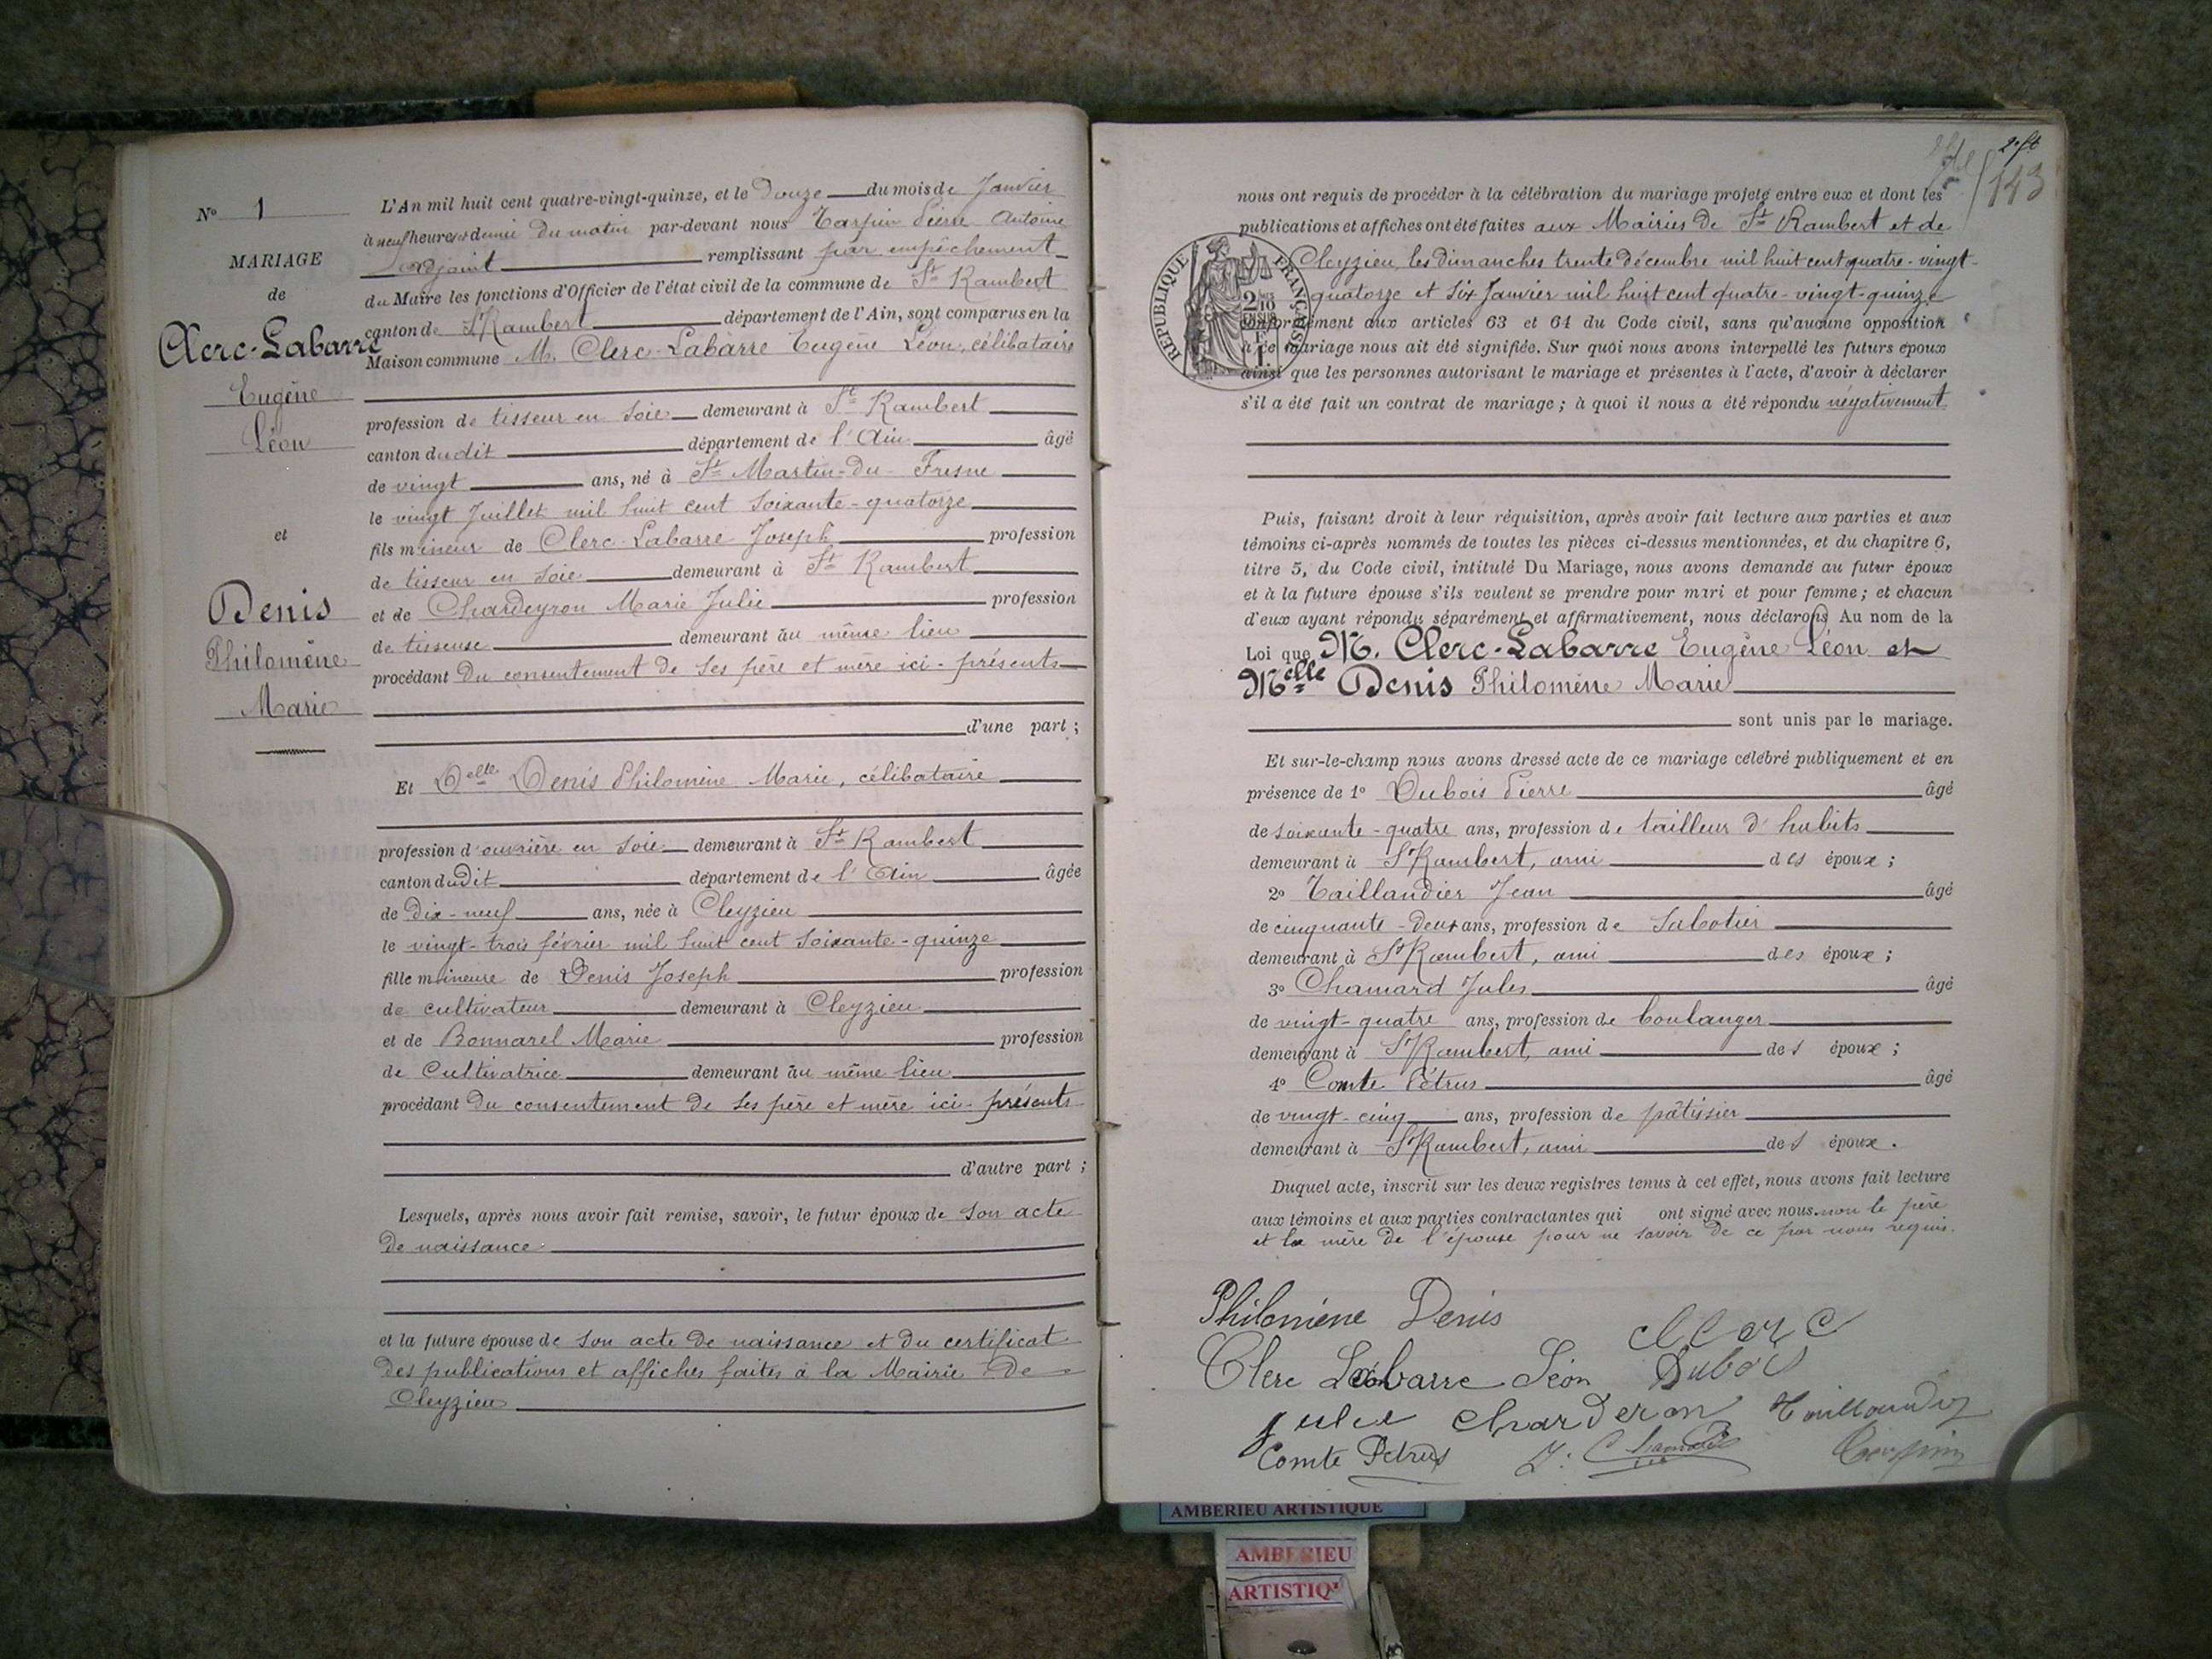 N° 1
MARIAGE
de
Clerc-Labarre
Eugène
Léon
et
Denis
Philomène
Marie
L'An mil huit cent quatre-vingt-quinze, et le Douze du mois de Janvier
à neuf heures et demie du matin par-devant nous Tarpin Pierre Antoine
adjoint remplissant par empêchement
du Maire les fonctions d'Officier de l'état civil de la commune de St Rambert
canton de St Rambert département de l'Ain, sont comparus en la
Maison commune M. Clerc-Labarre Eugène Léon, célibataire
profession de tisseur en soie demeurant à St Rambert
canton dudit département de l'Ain âgé
de vingt ans, né à St Martin-du-Fresne
le vingt Juillet mil huit cent soixante-quatorze
fils mineur de Clerc-Labarre Joseph profession
de tisseur en soie demeurant à St Rambert
et de Chardeyron Marie Julie profession
de tisseuse demeurant au même lieu
procédant du consentement de ses père et mère ici-présents
d'une part ;
Et Delle Denis Philomène Marie, célibataire
profession d'ouvrière en soie demeurant à St Rambert
canton dudit département de l'Ain âgée
de dix-neuf ans, née à Cleyzieu
le vingt-trois février mil huit cent soixante-quinze
fille mineure de Denis Joseph profession
de cultivateur demeurant à Cleyzieu
et de Bonnarel Marie profession
de Cultivatrice demeurant au même lieu
procédant du consentement de ses père et mère ici-présents
d'autre part ;
Lesquels, après nous avoir fait remise, savoir, le futur époux de son acte
de naissance
et la future épouse de son acte de naissance et du certificat
des publications et affiches faites à la Mairie de
Cleyzieu
143
nous ont requis de procéder à la célébration du mariage projeté entre eux et dont les
publications et affiches ont été faites aux Mairies de St Rambert et de
Cleyzieu, les dimanches trente décembre mil huit cent quatre-vingt-
quatorze et six Janvier mil huit cent quatre-vingt-quinze
conformément aux articles 63 et 64 du Code civil, sans qu'aucune opposition
à ce mariage nous ait été signifiée. Sur quoi nous avons interpellé les futurs époux
ainsi que les personnes autorisant le mariage et présentes à l'acte, d'avoir à déclarer
s'il a été fait un contrat de mariage ; à quoi il nous a été répondu négativement
RÉPUBLIQUE FRANÇAISE
Puis, faisant droit à leur réquisition, après avoir fait lecture aux parties et aux
témoins ci-après nommés de toutes les pièces ci-dessus mentionnées, et du chapitre 6,
titre 5, du Code civil, intitulé Du Mariage, nous avons demandé au futur époux
et à la future épouse s'ils veulent se prendre pour mari et pour femme ; et chacun
d'eux ayant répondu séparément et affirmativement, nous déclarons Au nom de la
Loi que M. Clerc-Labarre Eugène Léon et
Melle Denis Philomène Marie
sont unis par le mariage.
Et sur-le-champ nous avons dressé acte de ce mariage célébré publiquement et en
présence de 1° Dubois Pierre âgé
de soixante-quatre ans, profession de tailleur d'habits
demeurant à St Rambert, ami des époux ;
2° Taillandier Jean âgé
de cinquante-deux ans, profession de Sabotier
demeurant à St Rambert, ami des époux ;
3° Chamard Jules âgé
de vingt-quatre ans, profession de boulanger
demeurant à St Rambert, ami des époux ;
4° Comte Pétrus âgé
de vingt-cinq ans, profession de pâtissier
demeurant à St Rambert, ami des époux.
Duquel acte, inscrit sur les deux registres tenus à cet effet, nous avons fait lecture
aux témoins et aux parties contractantes qui ont signé avec nous. non le père
et la mère de l'épouse pour ne savoir de ce par nous requis.
Philomène Denis
Clerc
Clerc Labarre Léon Dubois
Julie Charderon Taillandier
Comte Pétrus J. Chamard Tarpin
AMBERIEU ARTISTIQUE
AMBERIEU
ARTISTIQ